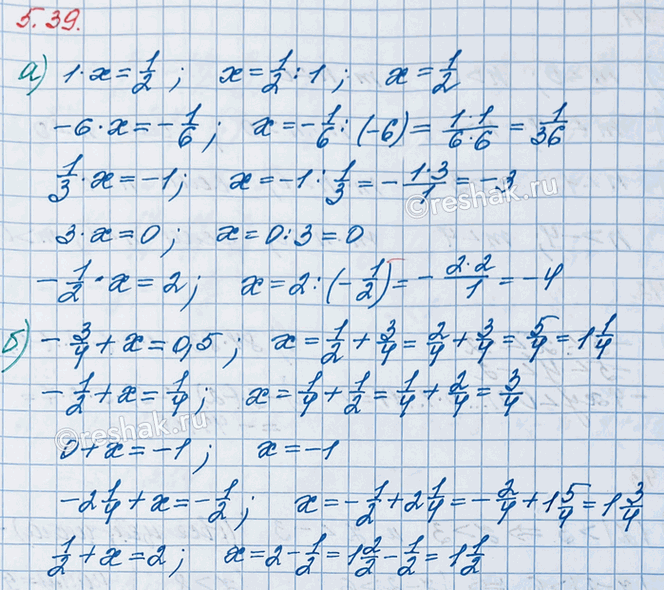 5.39.
а) 1·x=1/2; x=1/2:1; x=1/2
-6·x=-1/6; x=-1/6:(-6)=1·1/6·6=1/36
1/3·x=-1; x=-1:1/3=-1·3/1=-3
3·x=0; x=0:3=0
-1/2·x=2; x=2:(-1/2)=-2·2/1=-4
б) -3/4+x=0,5; x=1/2+3/4=2/4+3/4=5/4=1 1/4
-1/2+x=1/4; x=1/4+1/2=1/4+2/4=3/4
0+x=-1; x=-1
-2 1/4+x=-1/2; x=-1/2+2 1/4=-2/4+1 5/4=1 3/4
1/2+x=2; x=2-1/2=1 2/2-1/2=1 1/2
©reshak.ru
©reshak.ru